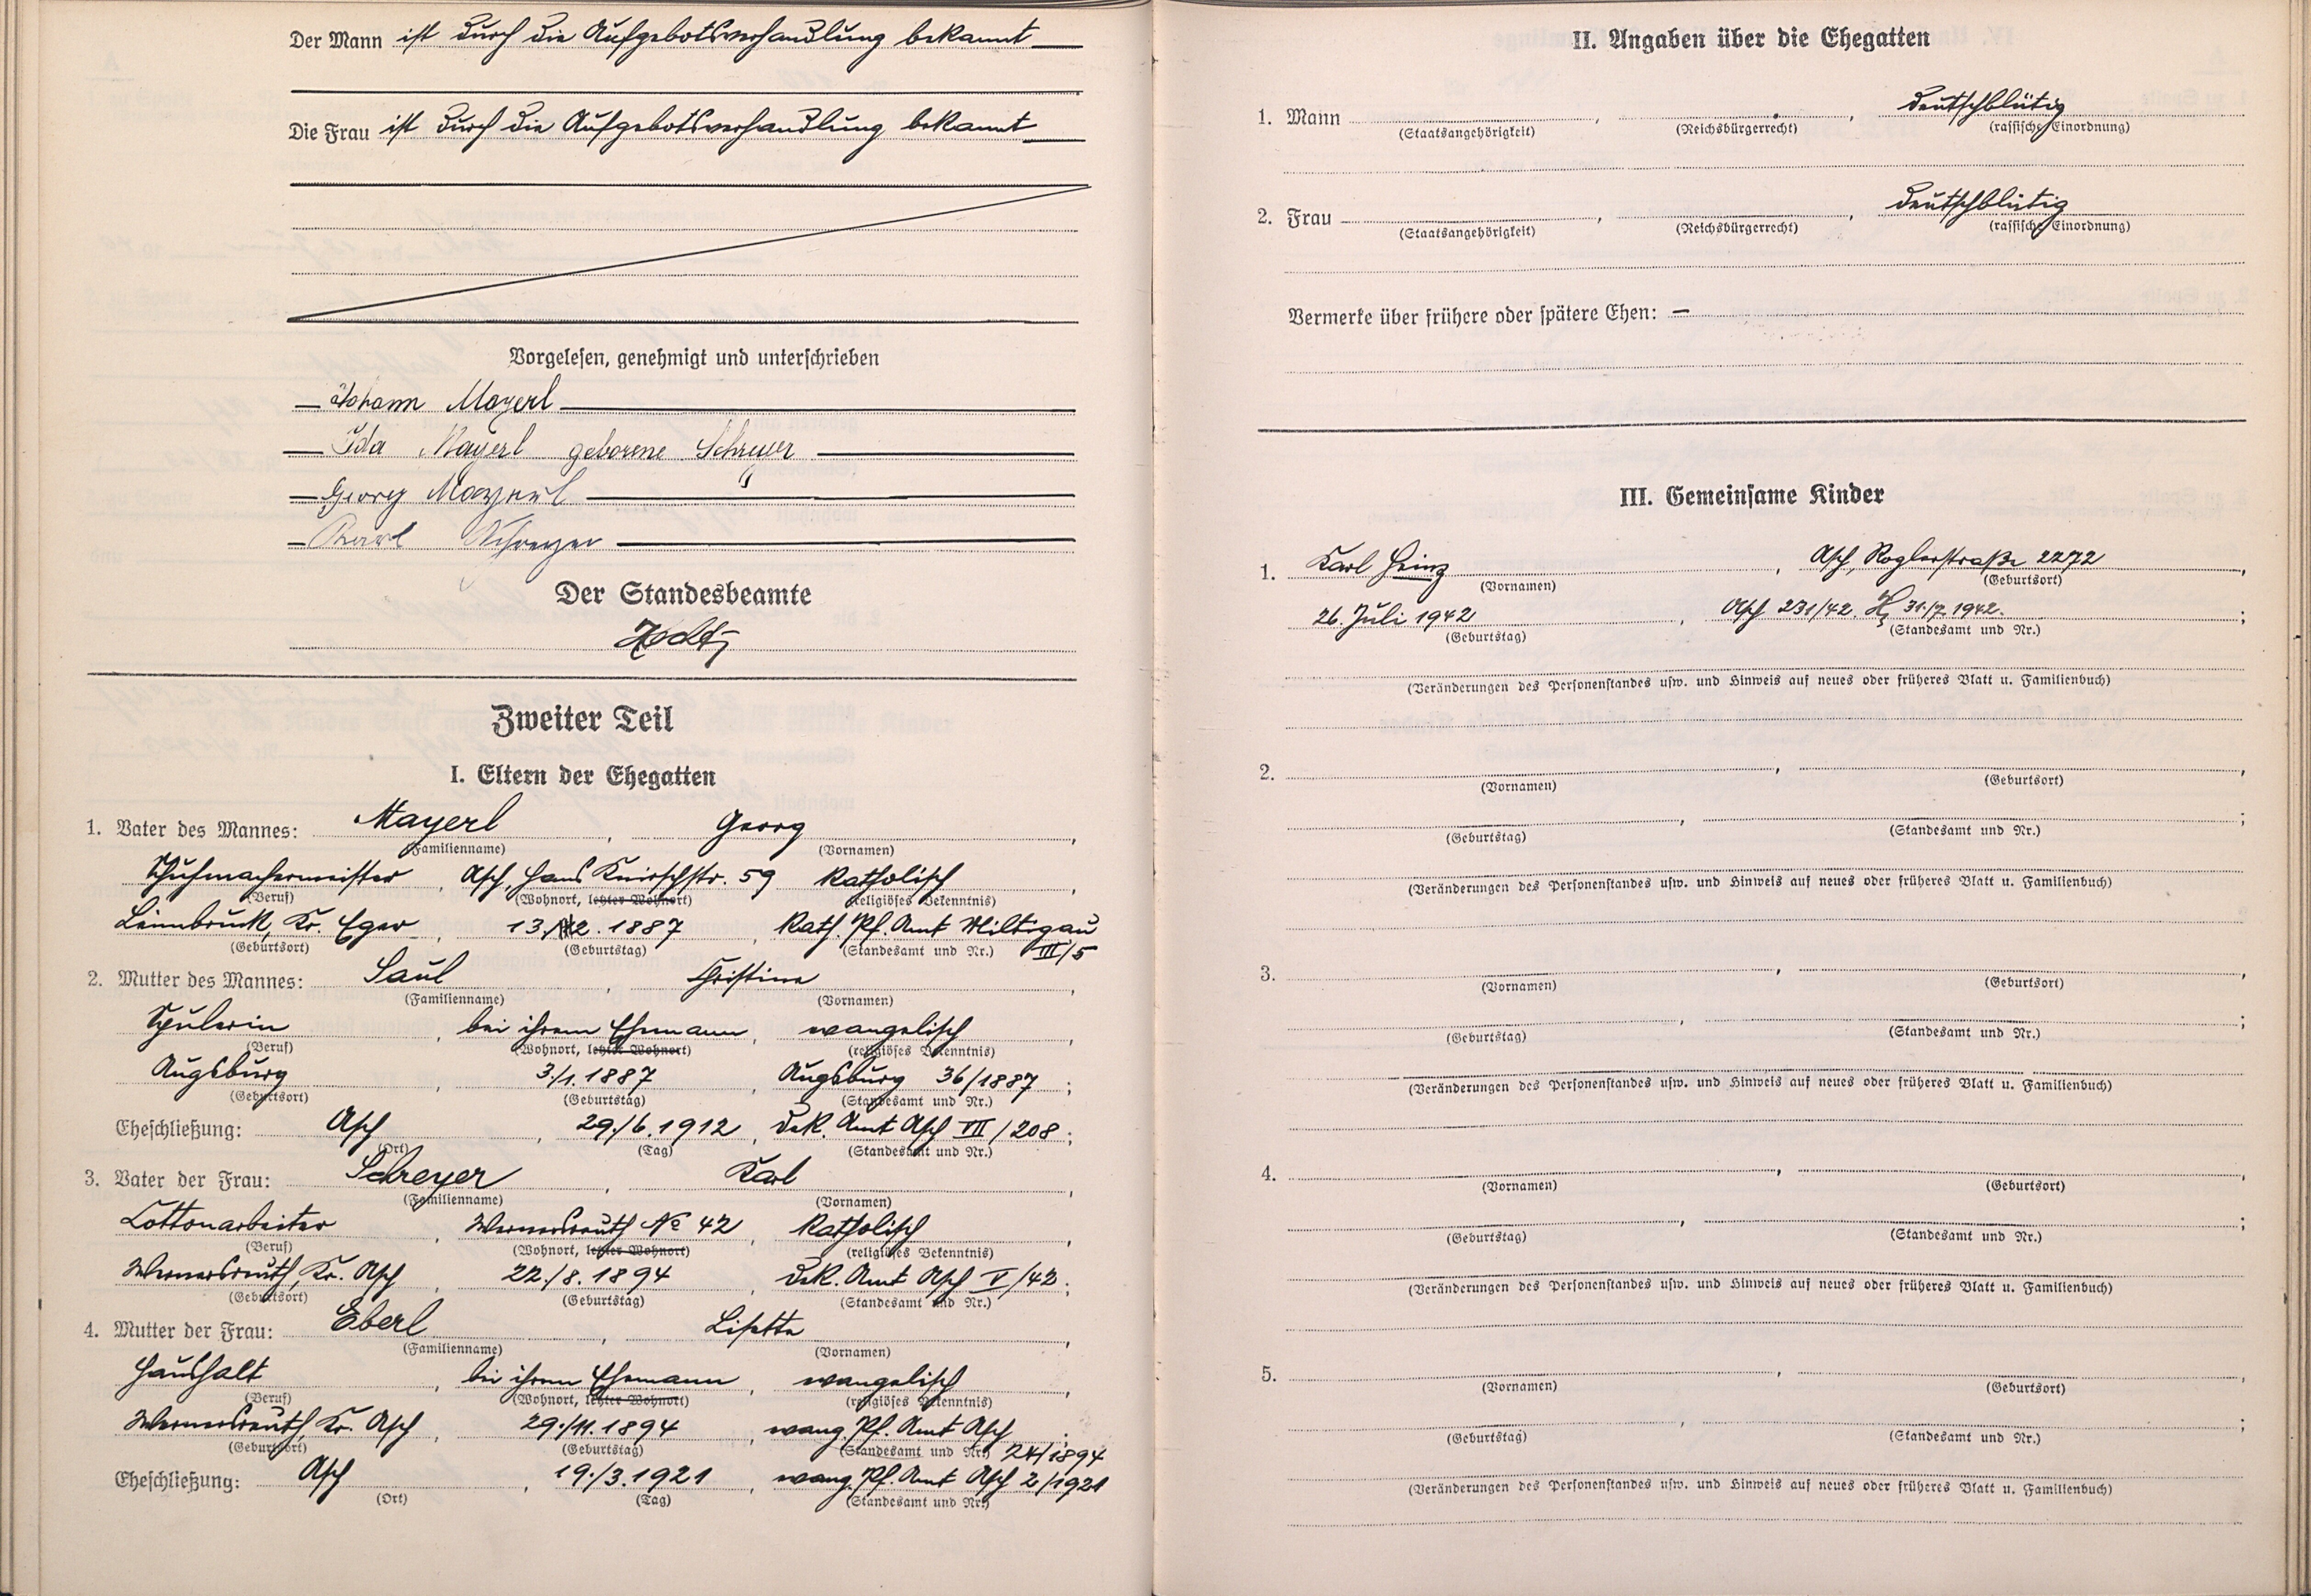 Der Mann ist durch die Aufgebotsverhandlung bekannt
Die Frau ist durch die Aufgebotsverhandlung bekannt
Vorgelesen, genehmigt und unterschrieben
Johann Mayerl
Ida Mayerl geborene Schreyer
Georg Mayerl
Karl Schreyer
Der Standesbeamte
Zweiter Teil
I. Eltern der Ehegatten
1. Vater des Mannes: Mayerl, Georg,
(Familienname) (Vornamen)
Schuhmachermeister, Asch, Hans Knirschstr. 59 katholisch,
(Beruf) (Wohnort, letzter Wohnort) (religiöses Bekenntnis)
Leimbruck, Kr. Eger, 13. 2. 1887, Kath. Pf. Amt Miltigau III/5
(Geburtsort) (Geburtstag) (Standesamt und Nr.)
2. Mutter des Mannes: Saul, Christine,
(Familienname) (Vornamen)
Spulerin, bei ihrem Ehemann, evangelisch,
(Beruf) (Wohnort, letzter Wohnort) (religiöses Bekenntnis)
Augsburg, 3./1. 1887, Augsburg 36/1887;
(Geburtsort) (Geburtstag) (Standesamt und Nr.)
Eheschließung: Asch, 29./6. 1912, Dek. Amt Asch VII/208;
(Ort) (Tag) (Standesamt und Nr.)
3. Vater der Frau: Schreyer, Karl,
(Familienname) (Vornamen)
Cottonarbeiter, Wernersreuth No 42, katholisch,
(Beruf) (Wohnort, letzter Wohnort) (religiöses Bekenntnis)
Wernersreuth, Kr. Asch, 22./8. 1894, Dek. Amt Asch V/42;
(Geburtsort) (Geburtstag) (Standesamt und Nr.)
4. Mutter der Frau: Eberl, Lisette,
(Familienname) (Vornamen)
Haushalt, bei ihrem Ehemann, evangelisch,
(Beruf) (Wohnort, letzter Wohnort) (religiöses Bekenntnis)
Wernersreuth, Kr. Asch, 29./11. 1894, evang. Pf. Amt Asch;
(Geburtsort) (Geburtstag) (Standesamt und Nr.) 24/1894
Eheschließung: Asch, 19./3. 1921, evang. Pf. Amt Asch 2/1921
(Ort) (Tag) (Standesamt und Nr.)
II. Angaben über die Ehegatten
1. Mann, , deutschblütig
(Staatsangehörigkeit) (Reichsbürgerrecht) (rassische Einordnung)
2. Frau, , deutschblütig
(Staatsangehörigkeit) (Reichsbürgerrecht) (rassische Einordnung)
Vermerke über frühere oder spätere Ehen: —
III. Gemeinsame Kinder
1. Karl Heinz, Asch, Roglerstraße 2272,
(Vornamen) (Geburtsort)
26. Juli 1942, Asch 231/42. 31./7. 1942.;
(Geburtstag) (Standesamt und Nr.)
(Veränderungen des Personenstandes usw. und Hinweis auf neues oder früheres Blatt u. Familienbuch)
2. , ,
(Vornamen) (Geburtsort)
, ;
(Geburtstag) (Standesamt und Nr.)
(Veränderungen des Personenstandes usw. und Hinweis auf neues oder früheres Blatt u. Familienbuch)
3. , ,
(Vornamen) (Geburtsort)
, ;
(Geburtstag) (Standesamt und Nr.)
(Veränderungen des Personenstandes usw. und Hinweis auf neues oder früheres Blatt u. Familienbuch)
4. , ,
(Vornamen) (Geburtsort)
, ;
(Geburtstag) (Standesamt und Nr.)
(Veränderungen des Personenstandes usw. und Hinweis auf neues oder früheres Blatt u. Familienbuch)
5. , ,
(Vornamen) (Geburtsort)
, ;
(Geburtstag) (Standesamt und Nr.)
(Veränderungen des Personenstandes usw. und Hinweis auf neues oder früheres Blatt u. Familienbuch)